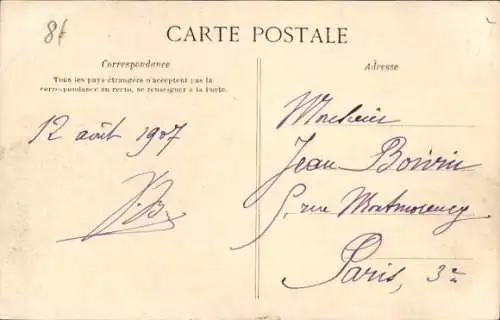 8f
CARTE POSTALE
Correspondance
Tous les pays étrangers n'acceptent pas la
correspondance au recto, se renseigner à la Poste.
12 août 1907
Adresse
Monsieur
Jean Boivin
5, rue Montmorency
Paris, 3e